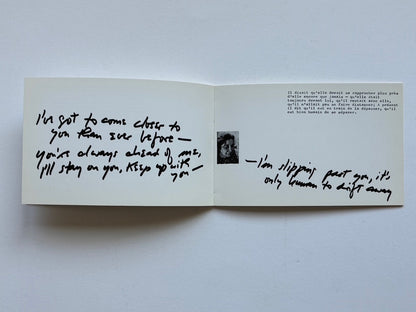 I've got to come closer to
you than ever before —
you're always ahead of me,
I'll stay on you, keep up with
you —
Il disait qu'elle devait se rapprocher plus près
d'elle encore que jamais — qu'elle était
toujours devant lui, qu'il restait avec elle,
qu'il n'allait pas se faire distancer; À présent
il dit qu'il est en train de la dépasser, qu'il
est bien humain de se séparer.
— I'm slipping past you, it's
only human to drift away